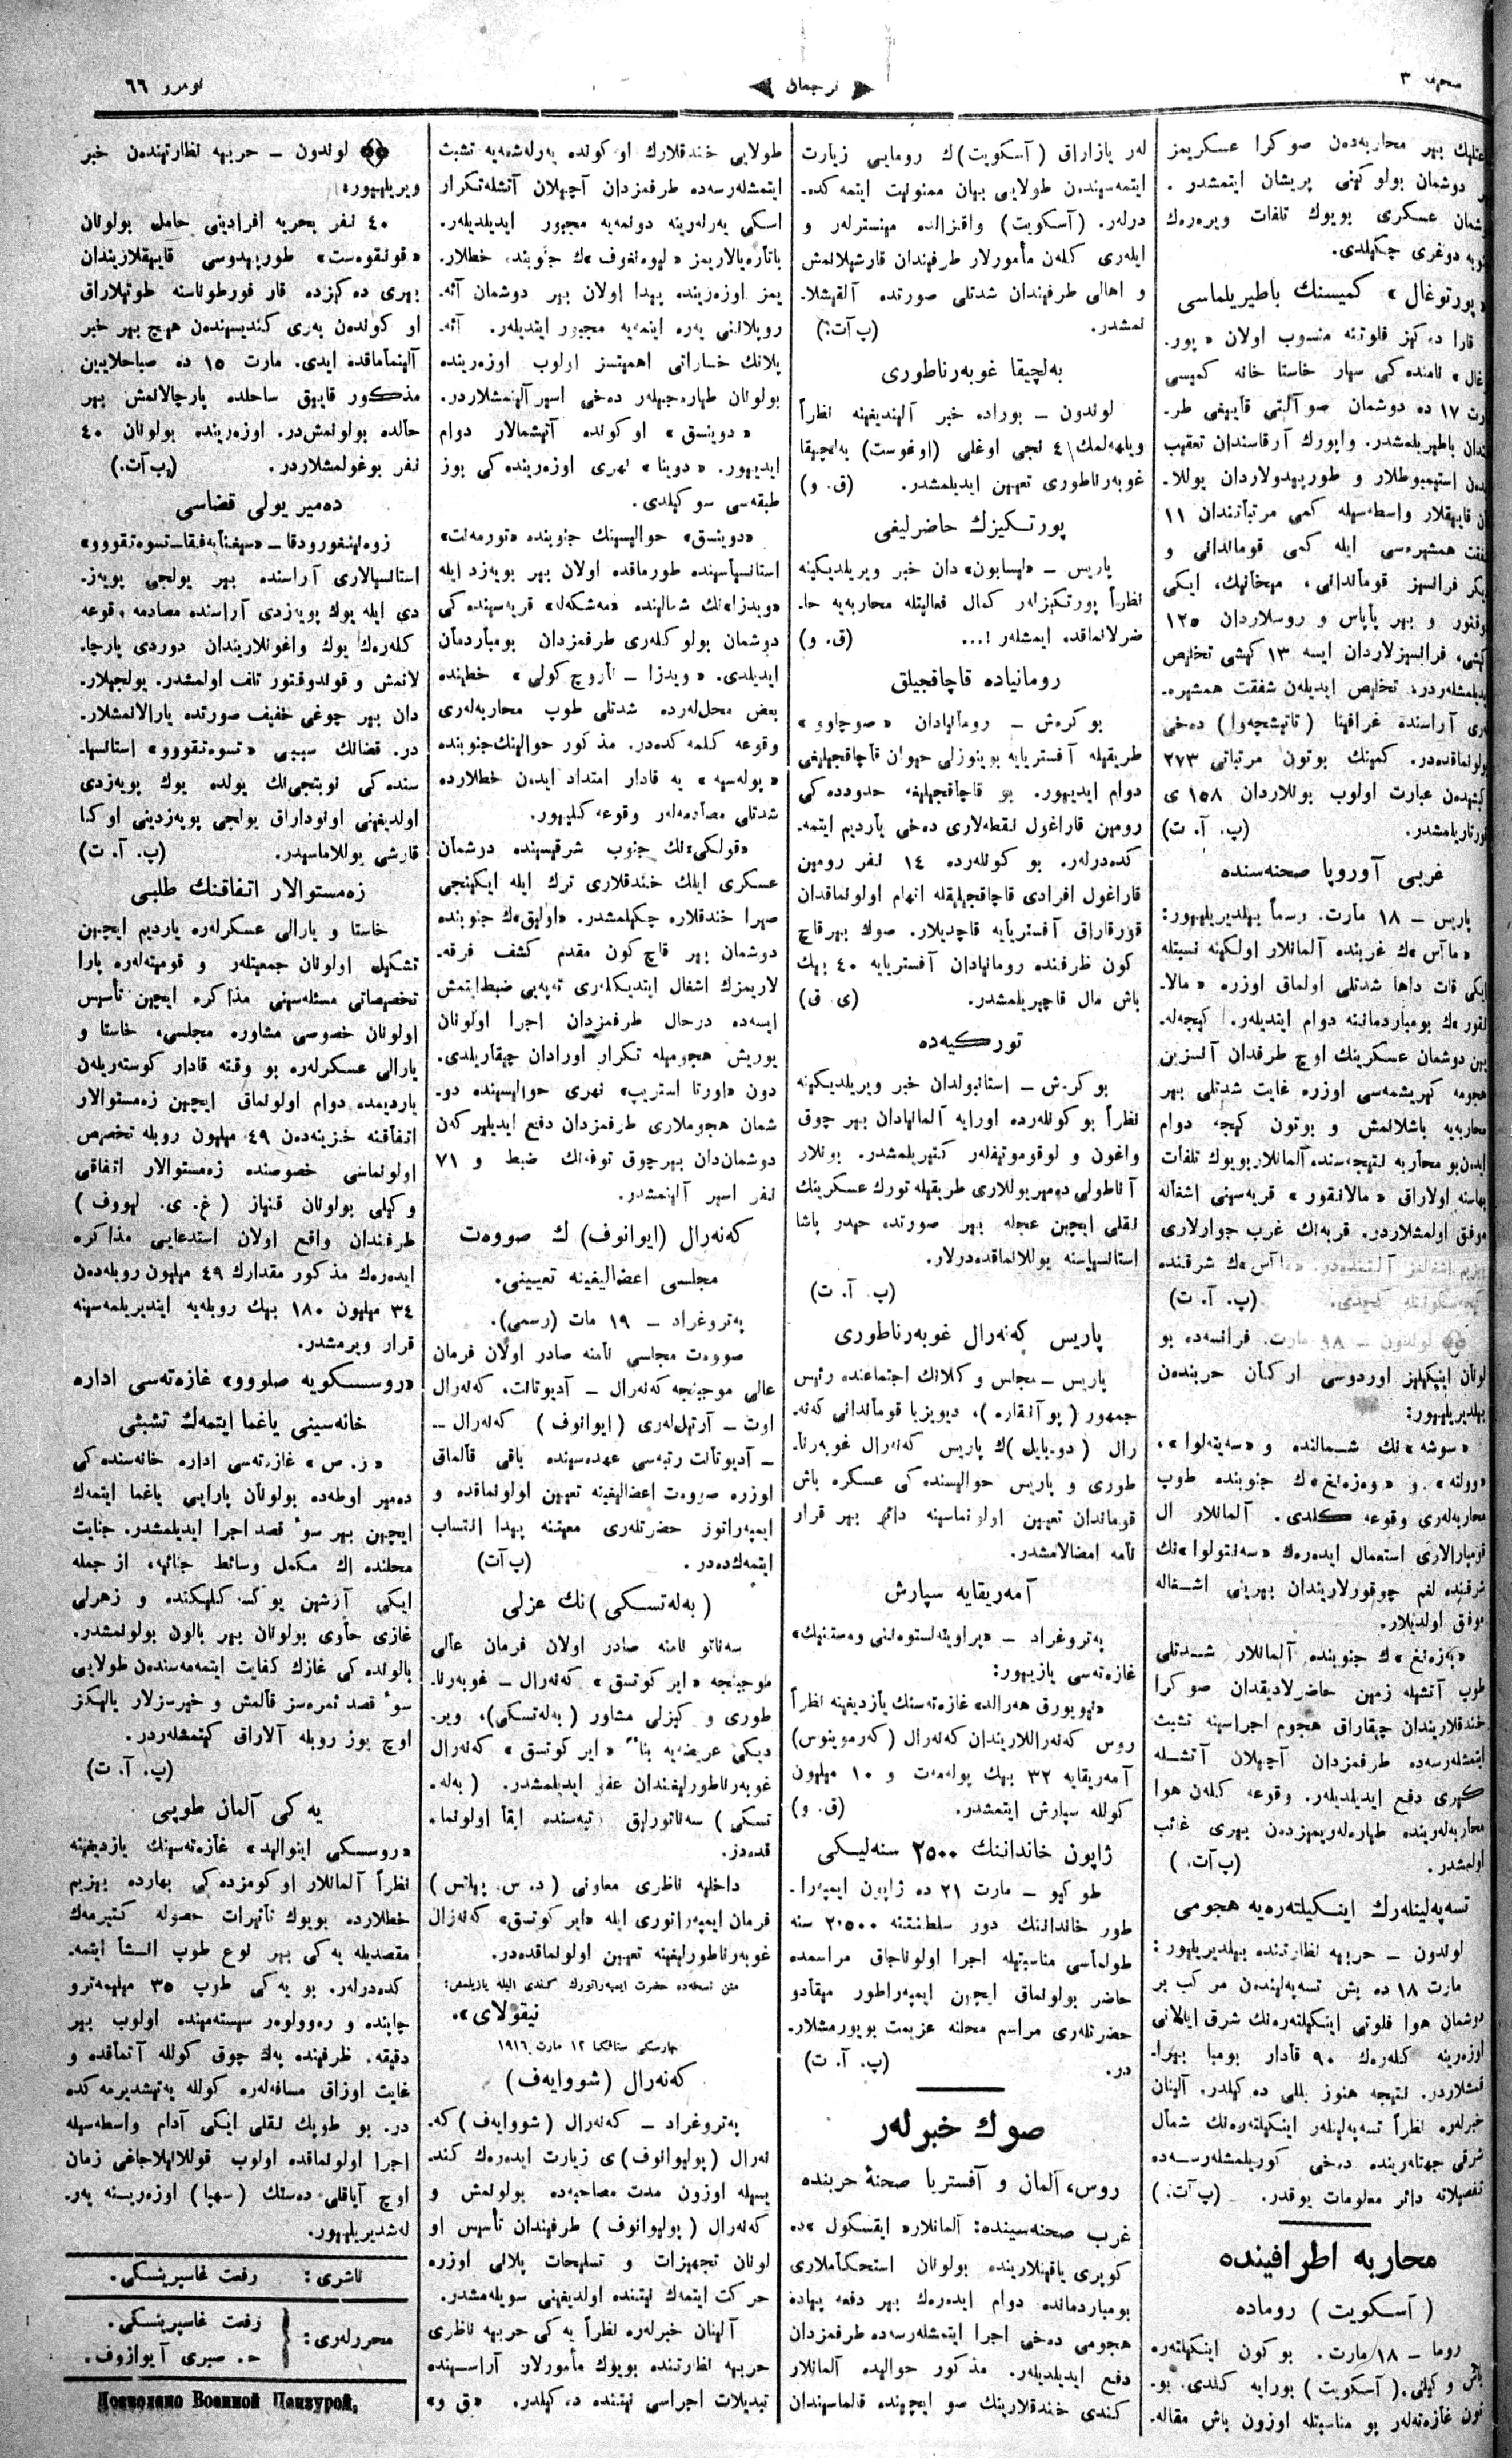 صحیفه ۳
ترجمان
نومرو ٦٦
بهر محاربه‌دن صوكرا عسكریمز
دوشمان بولوكهنی پریشان ایتمشدر.
عسكری بویوك تلفات ویره‌رك
دوغری چكیلدی.
«پورتوغال» كمیسنك باطیریلماسی
قارا دكز فلوتنه منسوب اولان «پور-
نامنده‌كی سیار خاستا خانه كمیسی
۱۷ ده دوشمان صو آلتی قایهغی طر-
باطیریلمشدر. واپورك آرقاسندان تعقیب
استیمبوطلار و طورپیدولاردان یوللا-
قایهقلار واسطه‌سیله كمی مرتباتندان ۱۱
همشیره‌سی ایله كمی قوماندانی و
فرانسیز قوماندانی، میخانیك، ایكی
و بهر پاپاس و روسلاردان ۱۲٥
فرانسیزلاردان ایسه ۱۳ كیشی تخلیص
تخلیص ایدیلن شفقت همشیره-
آراسنده غرافینا (تاتیشچه‌وا) ده‌خی
كمینك بوتون مرتباتی ۲۷۳
عبارت اولوب بونلاردان ۱٥۸ ی
(پ. آ. ت)
غربی آوروپا صحنه‌سنده
پاریس – ۱۸ مارت. رسماً بهلدیریلیور:
«مآس»ك غربنده آلمانلار اولكینه نسبتله
ایكی قات داها شدتلی اولماق اوزره «مالا-
بومباردمانینه دوام ایتدیله‌ر. كیجه‌له-
دوشمان عسكرینك اوچ طرفدان آنسزین
هجومه كیریشمه‌سی اوزره غایت شدتلی بهر
محاربه‌یه باشلانمش و بوتون كیجه دوام
محاربه نتیجه‌سنده آلمانلار بویوك تلفات
بهاسنه اولاراق «مالانقور» قریه‌سنی اشغاله
موفق اولمشلاردر. قریه‌نك غرب جوارلاری
(پ. آ. ت)
لوندون – مارت. فرانسه‌ده بو
اینگیلیز اوردوسی اركان حربندن
بهلدیریلیور:
«سوشه»نك شمالنده و «سه‌نته‌لوا»،
و «ووزه‌نغ»ك جنوبنده طوپ
محاربه‌لری وقوعه كلدی. آلمانلار ال
استعمال ایده‌رك «سه‌نتولوا»نك
شرقنده لغم چوقورلاریندان بهرینی اشغاله
موفق اولدیلار.
جنوبنده آلمانلار شدتلی
طوپ آتشیله زمین حاضرلادیقدان صوكرا
خندقلاریندان چیقاراق هجوم اجراسینه تشبث
ایتمشله‌رسه‌ده طرفمزدان آچیلان آتشله
كیری دفع ایدیلدیله‌ر. وقوعه كلن هوا
محاربه‌له‌رینده طیاره‌له‌ریمزدن بهری غائب
اولمشدر. (پ آت.)
تسه‌په‌لینله‌رك اینگیلته‌ره‌یه هجومی
لوندون – حربیه نظارتنده بهلدیریلیور:
مارت ۱۸ ده بش تسه‌په‌لیندن مركب بر
دوشمان هوا فلوتی اینگیلته‌ره‌نك شرق ایالاتی
اوزه‌رینه كله‌رك ۹۰ قادار بومبا بهرا-
قمشلاردر. نتیجه هنوز بللی ده‌كیلدر. آلینان
خبرله‌ره نظراً تسه‌په‌لینله‌ر اینگیلته‌ره‌نك شمال
شرقی جهتله‌رینده ده‌خی كوریلمشله‌رسه‌ده
تفصیلاته دائر معلومات یوقدر. (پ آت.)
محاربه اطرافینده
(آسكویت) روماده
روما – ۱۸ مارت. بو كون اینگیلته‌ره
باش وكیلی (آسكویت) بورایه كلدی. بو-
تون غازه‌ته‌له‌ر بو مناسبتله اوزون باش مقاله-
له‌ر یازاراق (آسكویت)ك رومایی زیارت
ایتمه‌سیندن طولایی بیان ممنونیت ایتمه‌كده-
درله‌ر. (آسكویت) واقزالده مینسترله‌ر و
ایله‌ری كلن مأمورلار طرفیندان قارشیلانمش
و اهالی طرفیندان شدتلی صورتده آلقیشلا-
نمشدر. (پ آت.)
به‌لچیقا غوبه‌رناطوری
لوندون – بوراده خبر آلیندیغینه نظراً
ویلهه‌لمك ٤ نجی اوغلی (اوغوست) به‌لچیقا
غوبه‌رناطوری تعیین ایدیلمشدر. (ق. و)
پورتكیزك حاضرلیغی
پاریس – «لیسابون»دان خبر ویریلدیكینه
نظراً پورتكیزله‌ر كمال فعالیتله محاربه‌یه حا-
ضرلانماقده ایمشله‌ر!... (ق. و)
رومانیاده قاچاقجیلق
بوكرش – رومانیادان «صوچاوو»
طریقیله آفستریایه بوینوزلی حیوان قاچاقجیلیغی
دوام ایدییور. بو قاچاقجیلیغه حدوددكی
رومین قاراغول نقطه‌لاری ده‌خی یاردیم ایتمه-
كده‌درله‌ر. بو كونله‌رده ۱٤ نفر رومین
قاراغول افرادی قاچاقجیلیقله اتهام اولونماقدان
قورقاراق آفستریایه قاچدیلار. صوك بهرقاچ
كون ظرفنده رومانیادان آفستریایه ٤۰ بیك
باش مال قاچیریلمشدر. (ی. ق)
توركیه‌ده
بوكرش – استانبولدان خبر ویریلدیكینه
نظراً بو كونله‌رده اورایه آلمانیادان بهر چوق
واغون و لوقوموتیفله‌ر كتیریلمشدر. بونلار
آناطولی دمیریوللاری طریقیله تورك عسكرینك
نقلی ایچین عجله بهر صورتده حیدر پاشا
استانسیاسنه یوللانماقده‌درلار.
(پ. آ. ت)
پاریس كه‌نه‌رال غوبه‌رناطوری
پاریس – مجلس وكلانك اجتماعنده رئیس
جمهور (پوآنقاره)، دیویزیا قوماندانی كه‌نه-
رال (دوبایل)ك پاریس كه‌نه‌رال غوبه‌رنا-
طوری و پاریس حوالیسنده‌كی عسكره باش
قوماندان تعیین اولونماسینه دائر بهر قرار
نامه امضالامشدر.
آمه‌ریقایه سپارش
په‌تروغراد – «پراویته‌لستوه‌ننی وه‌ستنیك»
غازه‌ته‌سی یازیور:
«نیویورق هه‌رالد» غازه‌ته‌سنك یازدیغینه نظراً
روس كه‌نه‌راللاریندان كه‌نه‌رال (كه‌رمونیوس)
آمه‌ریقایه ۳۲ بیك پوله‌مه‌ت و ۱۰ میلیون
كولله سپارش ایتمشدر. (ق. و)
ژاپون خانداننك ۲٥۰۰ سنه‌لیكی
طوكیو – مارت ۲۱ ده ژاپون ایمپه‌را-
طور خاندانینك دور سلطنتینه ۲٬٥۰۰ سنه
طولماسی مناسبتیله اجرا اولوناجاق مراسمده
حاضر بولونماق ایچین ایمپه‌راطور میقادو
حضرتله‌ری مراسم محلنه عزیمت بویورمشلار-
در. (پ. آ. ت)
صوك خبرله‌ر
روس، آلمان و آفستریا صحنهٔ حربنده
غرب صحنه‌سینده: آلمانلار «ایقسكول»ده
كوپری یاقینلارینده بولونان استحكاملاری
بومباردمانده دوام ایده‌رك بهر دفعه پیاده
هجومی ده‌خی اجرا ایتمشله‌رسه‌ده طرفمزدان
دفع ایدیلدیله‌ر. مذكور حوالیده آلمانلار
كندی خندقلارینك صو ایچینده قالماسیندان
طولایی خندقلارك اوكونده یه‌رله‌شمه‌یه تشبث
ایتمشله‌رسه‌ده طرفمزدان آچیلان آتشله تكرار
اسكی یه‌رله‌رینه دونمه‌یه مجبور ایدیلدیله‌ر.
باتاره‌یالاریمز «لیوه‌نغوف»ك جنوبنده خطلار-
یمز اوزه‌رینده پیدا اولان بهر دوشمان آئه-
روپلاننی یه‌ره اینمه‌یه مجبور ایتدیله‌ر. آئه-
پلانك خساراتی اهمیتسز اولوب اوزه‌رینده
بولونان طیاره‌جیله‌ر ده‌خی اسیر آلینمشلاردر.
«دوینسق» اوكونده آتیشمالار دوام
ایدییور. «دوینا» نهری اوزه‌رینده‌كی بوز
طبقه‌سی سوكیلدی.
«دوینسق» حوالیسینك جنوبنده «تورمه‌نت»
استانسیاسینده طورماقده اولان بهر پویه‌زد ایله
«ویدزا»نك شمالینده «مه‌شكه‌له» قریه‌سینده‌كی
دوشمان بولوكله‌ری طرفمزدان بومباردمان
ایدیلدی. «ویدزا – ناروچ كولی» خطینده
بعض محلله‌رده شدتلی طوپ محاربه‌له‌ری
وقوعه كلمه‌كده‌در. مذكور حوالینك جنوبنده
«پوله‌سیه» یه قادار امتداد ایدن خطلارده
شدتلی مصادمه‌له‌ر وقوعه كلیور.
«قولكی»نك جنوب شرقیسینده دوشمان
عسكری ایلك خندقلاری ترك ایله ایكینجی
صیرا خندقلاره چكیلمشدر. «اولیق»ك جنوبنده
دوشمان بهر قاچ كون مقدم كشف فرقه-
لاریمزك اشغال ایتدیكله‌ری ته‌په‌یی ضبط ایتمش
ایسه‌ده درحال طرفمزدان اجرا اولونان
یوریش هجومیله تكرار اورادان چیقاریلدی.
دون «اورتا استریپ» نهری حوالیسینده دو-
شمان هجوملاری طرفمزدان دفع ایدیلیركن
دوشمان‌دان بهرچوق توفه‌نك ضبط و ۷۱
نفر اسیر آلینمشدر.
كه‌نه‌رال (ایوانوف) ك صووه‌ت
مجلسی اعضالیغینه تعیینی.
په‌تروغراد – ۱۹ مات (رسمی).
صووه‌ت مجلسی نامنه صادر اولان فرمان
عالی موجبنجه كه‌نه‌رال – آدیوتانت، كه‌نه‌رال
اوت – آرتیل‌له‌ری (ایوانوف) كه‌نه‌رال –
– آدیوتانت رتبه‌سی عهده‌سینده باقی قالماق
اوزره صووه‌ت اعضالیغینه تعیین اولونماقده و
ایمپه‌راتور حضرتله‌ری معیتنه پیدا انتساب
ایتمه‌كده‌در. (پ آت)
(به‌له‌تسكی) نك عزلی
سه‌ناتو نامنه صادر اولان فرمان عالی
موجبنجه «ایركوتسق» كه‌نه‌رال – غوبه‌رنا-
طوری و كیزلی مشاور (به‌له‌تسكی)، ویر-
دیكی عریضه‌یه بناً «ایركوتسق» كه‌نه‌رال
غوبه‌رناطورلیغیندان عفو ایدیلمشدر. (به‌له-
تسكی) سه‌ناتورلق رتبه‌سنده ابقا اولونما-
قده‌در.
داخلیه ناظری معاونی (د. س. پیلتس)
فرمان ایمپه‌راتوری ایله «ایركوتسق» كه‌نه‌رال
غوبه‌رناطورلیغینه تعیین اولونماقده‌در.
متن نسخه‌ده حضرت ایمپه‌راتورك كندی الیله یازیلمش:
نیقولای».
جارسكی ستافكا ۱۲ مارت ۱۹۱٦
كه‌نه‌رال (شووایه‌ف)
په‌تروغراد – كه‌نه‌رال (شووایه‌ف) كه-
نه‌رال (پولیوانوف)ی زیارت ایده‌رك كند-
یسیله اوزون مدت مصاحبه‌ده بولونمش و
كه‌نه‌رال (پولیوانوف) طرفیندان تأسیس او
لونان تجهیزات و تسلیحات پلانی اوزره
حركت ایتمه‌ك نیتنده اولدیغینی سویله‌مشدر.
آلینان خبرله‌ره نظراً یه‌كی حربیه ناظری
حربیه نظارتنده بویوك مأمورلار آراسینده
تبدیلات اجراسی نیتنده ده‌كیلدر. «ق و»
لوندون – حربیه نظارتیندن خبر
ویریلییور:
٤۰ نفر بحریه افرادینی حامل بولونان
«قونقوه‌ست» طورپیدوسی قایهقلاریندان
بهری ده‌كزده قار فورطوناسنه طوتیلاراق
او كوندن به‌ری كندیسیندن هیچ بهر خبر
آلینماماقده ایدی. مارت ۱٥ ده صباحلایین
مذكور قایهق ساحلده پارچالانمش بهر
حالده بولونمش‌در. اوزه‌رینده بولونان ٤۰
نفر بوغولمشلاردر. (پ آت.)
ده‌میر یولی قضاسی
استانسیالاری آراسنده بهر یولجی پویه‌ز-
دی ایله یوك پویه‌زدی آراسنده مصادمه وقوعه
كله‌رك یوك واغونلاریندان دوردی پارچا-
لانمش و قوندوقتور تلف اولمشدر. یولجیلار-
دان بهر چوغی خفیف صورتده یارالانمشلار-
در. قضانك سببی «تسوه‌تقووو» استانسیا-
سنده‌كی نوبتجی‌نك یولده یوك پویه‌زدی
اولدیغینی اونوداراق یولجی پویه‌زدینی اوكا
قارشی یوللاماسیدر. (پ. آ. ت)
زه‌مستوالار اتفاقنك طلبی
خاستا و یارالی عسكرله‌ره یاردیم ایچین
تشكیل اولونان جمعیتله‌ر و قومیته‌له‌ره پارا
تخصیصاتی مسئله‌سینی مذاكره ایچین تأسیس
اولونان خصوصی مشاوره مجلسی، خاستا و
یارالی عسكرله‌ره بو وقته قادار كوسته‌ریله‌ن
یاردیمده دوام اولونماق ایچین زه‌مستوالار
اتفاقنه خزینه‌دن ٤۹ میلیون روبله تخصیص
اولونماسی خصوصنده زه‌مستوالار اتفاقی
وكیلی بولونان قنیاز (غ. ی. لیووف)
طرفندان واقع اولان استدعایی مذاكره
ایده‌رك مذكور مقدارك ٤۹ میلیون روبله‌دن
۳٤ میلیون ۱۸۰ بیك روبله‌یه ایندیریلمه‌سینه
قرار ویرمشدر.
«روسسكویه صلووو» غازه‌ته‌سی اداره
خانه‌سینی یاغما ایتمه‌ك تشبثی
«ر. ص» غازه‌ته‌سی اداره خانه‌سنده‌كی
ده‌میر اوطه‌ده بولونان پارایی یاغما ایتمه‌ك
ایچین بهر سوٴ قصد اجرا ایدیلمشدر. جنایت
محلنده اك مكمل وسائط جنائیه، از جمله
ایكی آرشین یوكسكلیكنده و زهرلی
غازی حاوی بولونان بهر بالون بولونمشدر.
بالونده‌كی غازك كفایت ایتمه‌مه‌سندن طولایی
سوٴ قصد ثمره‌سز قالمش و خیرسزلار یالیكز
اوچ یوز روبله آلاراق كیتمشله‌ردر.
(پ. آ. ت)
یه‌كی آلمان طوپی
«روسسكی اینوالید» غازه‌ته‌سینك یازدیغینه
نظراً آلمانلار اوكومزده‌كی بهارده بهزیم
خطلارده بویوك تأثیرات حصوله كتیرمه‌ك
مقصدیله یه‌كی بهر نوع طوپ انشأ ایتمه-
كده‌درله‌ر. بو یه‌كی طوپ ۳٥ میلیمه‌ترو
چاپنده و ره‌وولوه‌ر سیسته‌مینده اولوب بهر
دقیقه ظرفینده پك چوق كولله آتماقده و
غایت اوزاق مسافه‌له‌ره كولله یه‌تیشدیرمه‌كده
در. بو طوپك نقلی ایكی آدام واسطه‌سیله
اجرا اولونماقده اولوب قوللانیلاجاغی زمان
اوچ آیاقلی ده‌ستك (سهپا) اوزه‌رینه یه‌ر-
له‌شدیریلییور.
ناشری: رفعت غاسپرینسكی.
محررله‌ری: رفعت غاسپرینسكی.
ح. صبری آیوازوف.
Дозволено Военной Цензурой.